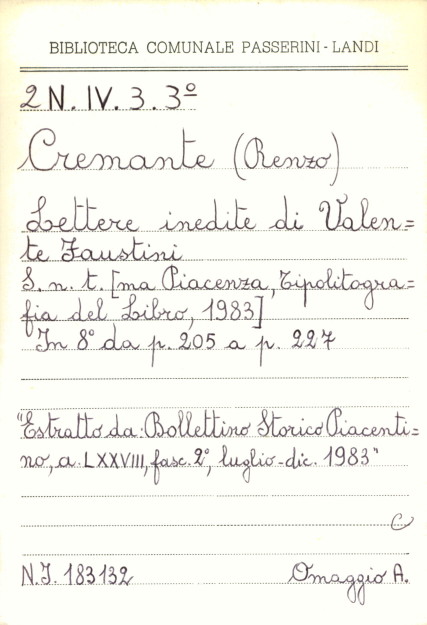 BIBLIOTECA COMUNALE PASSERINI - LANDI
2 N. IV. 3. 3º
Cremante (Renzo)
Lettere inedite di Valen=
te Faustini
S. n. t. [ma Piacenza, Tipolitogra=
fia del Libro, 1983]
In 8º da p. 205 a p. 227
"Estratto da: Bollettino Storico Piacenti=
no, a. LXXVIII, fasc. 2º, luglio-dic. 1983"
C
N.I. 183132 Omaggio A.